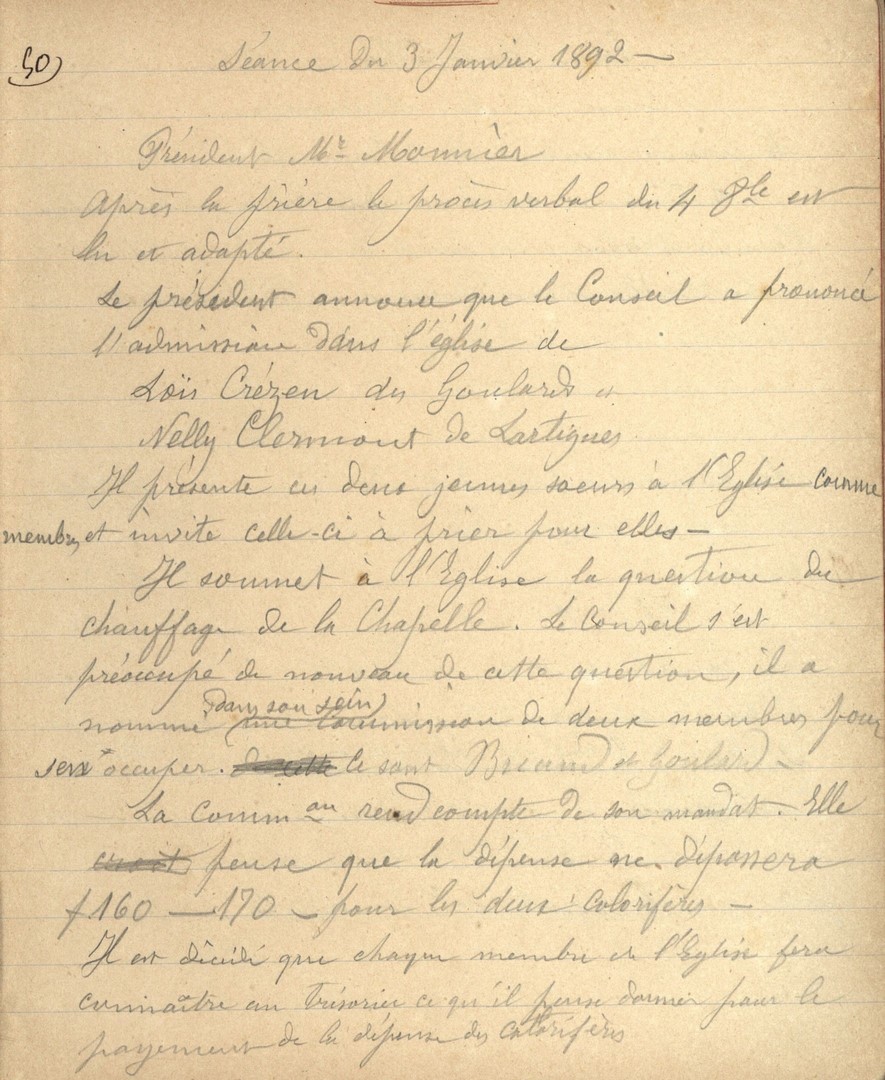 50
Séance du 3 Janvier 1892 —
Président Mr Monnier
Après la prière le procès verbal du 4 8bre est
lu et adapté.
Le président annonce que le Conseil a prononcé
l'admission dans l'église de
Loïs Crézen des Goulards et
Nelly Clermont de Lartigues
Il présente ces deux jeunes soeurs à l'Eglise comme
membres et invite celle-ci à prier pour elles —
Il soumet à l'Eglise la question du
chauffage de la Chapelle. Le Conseil s'est
préoccupé de nouveau de cette question, il a
dans son sein
nommé une commission de deux membres pour
s'en occuper. de cette ce sont Bruand et Goulard —
La Comm on rend compte de son mandat. Elle
croit pense que la dépense ne dépassera
f 160 — 170 — pour les deux calorifères —
Il est décidé que chaque membre de l'Eglise fera
connaître au Trésorier ce qu'il pense donner pour le
payement de la dépense des calorifères